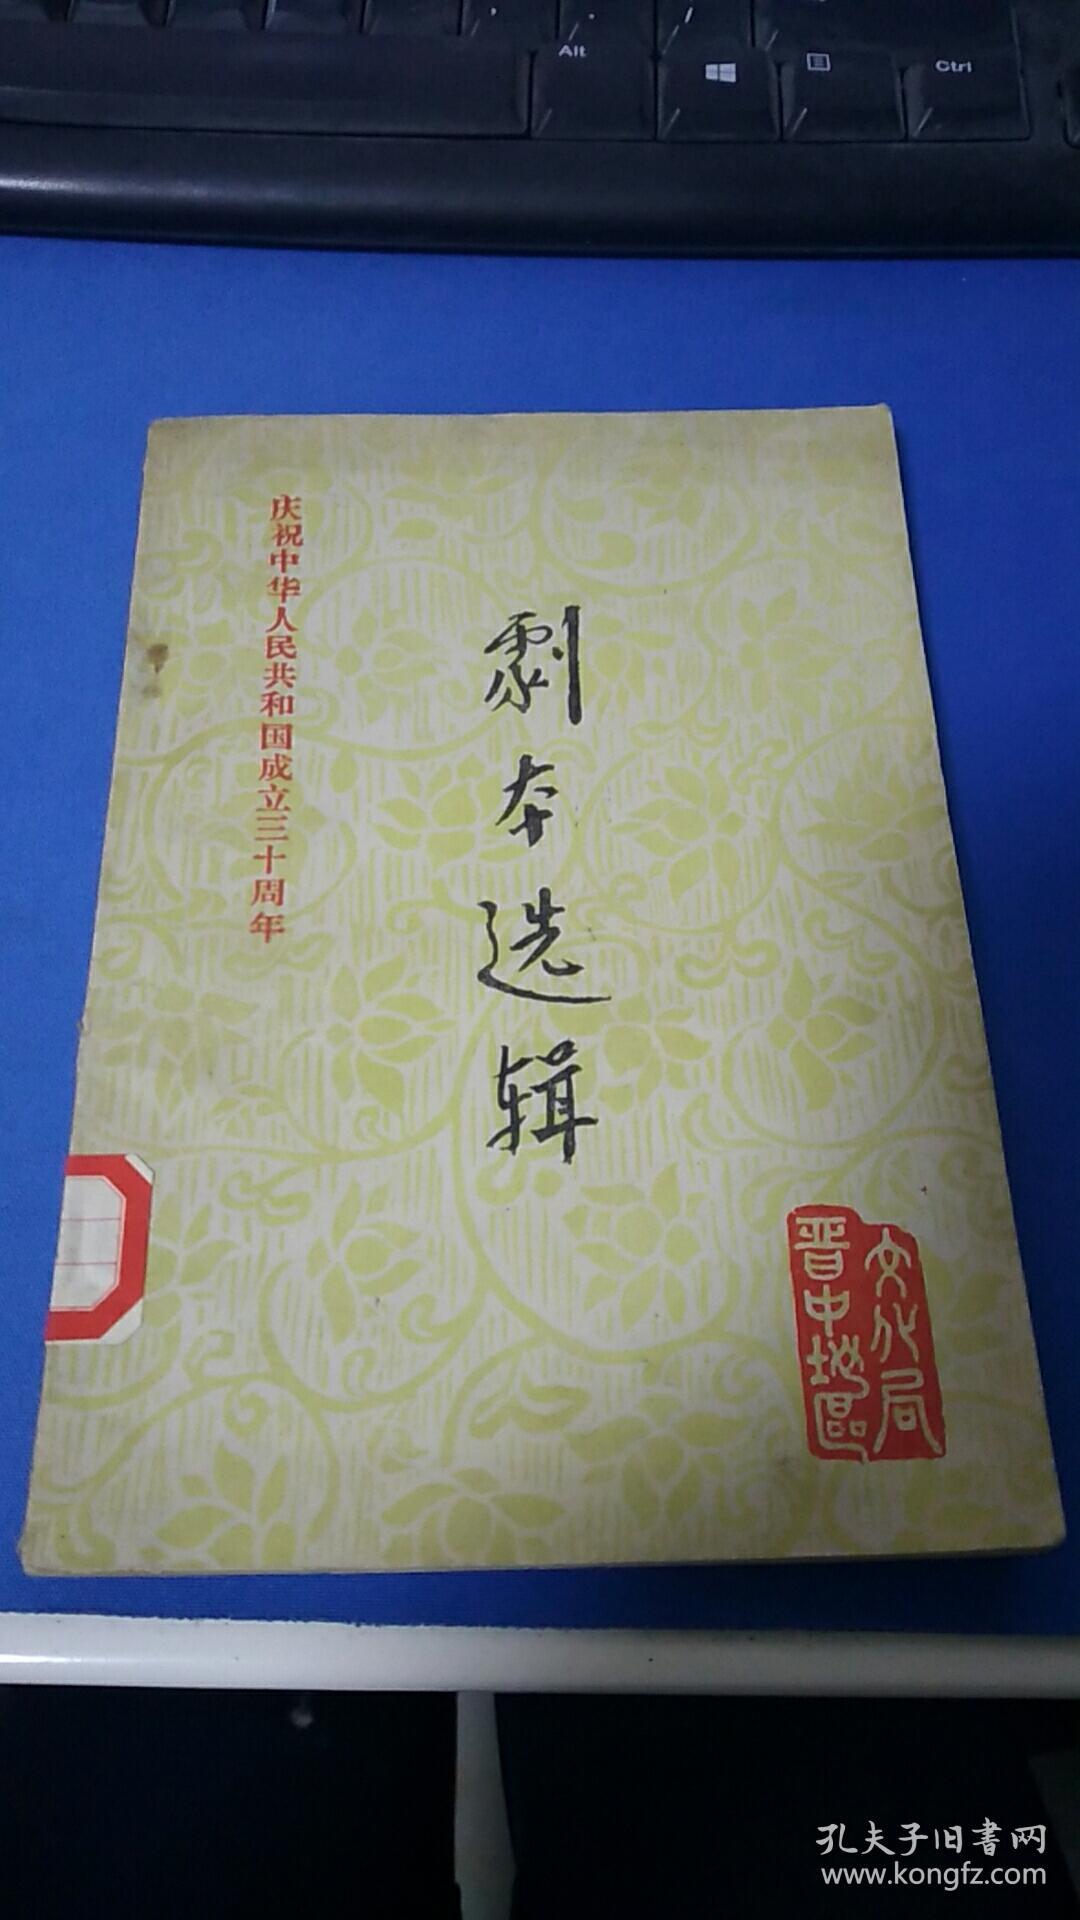 Alt
Ctrl
庆祝中华人民共和国成立三十周年
劇本选辑
文化局
晋中地區
孔夫子旧書网
www.kongfz.com